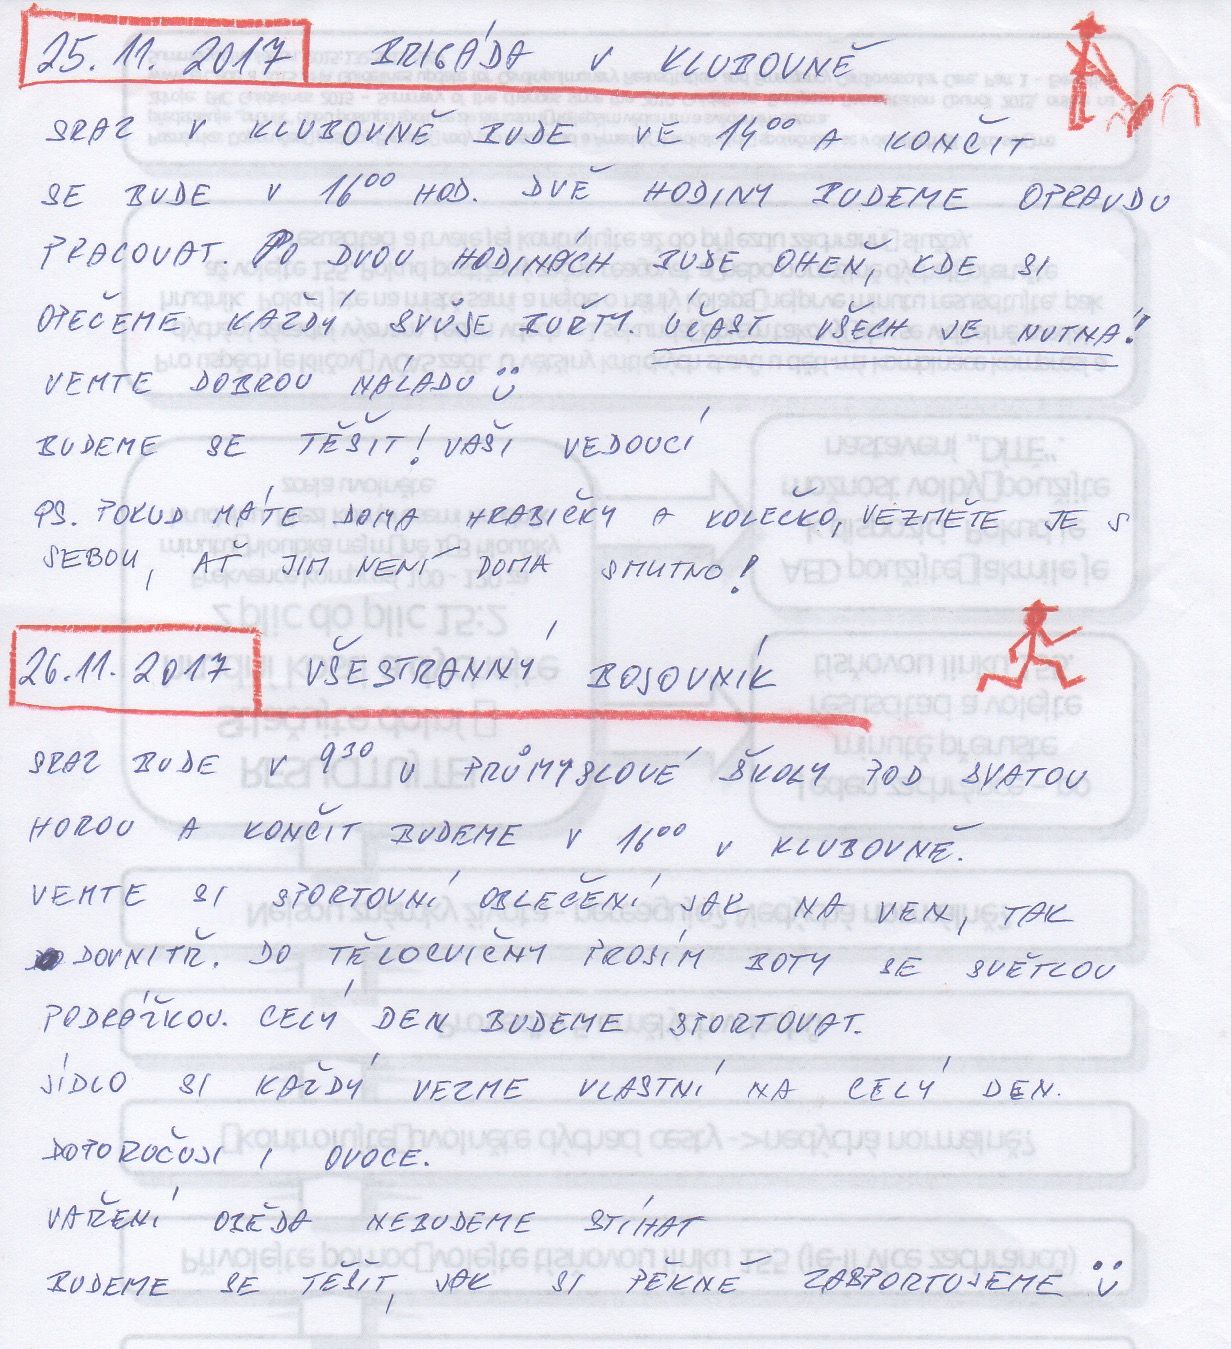 25. 11. 2017 BRIGÁDA V KLUBOVNĚ
SRAZ V KLUBOVNĚ BUDE VE 14⁰⁰ A KONČIT
SE BUDE V 16⁰⁰ HOD. DVĚ HODINY BUDEME OPRAVDU
PRACOVAT. PO DVOU HODINÁCH BUDE OHEŇ, KDE SI
OPEČEME KAŽDÝ SVŮJE BUŘTY. ÚČAST VŠECH JE NUTNÁ!
VEMTE DOBROU NÁLADU
BUDEME SE TĚŠIT! VAŠI VEDOUCÍ
PS. POKUD MÁTE DOMA HRABIČKY A KOLEČKO, VEZMĚTE JE S
SEBOU, AŤ JIM NENÍ DOMA SMUTNO!
26.11. 2017 VŠESTRANNÝ BOJOVNÍK
SRAZ BUDE V 9³⁰ U PRŮMYSLOVÉ ŠKOLY POD SVATOU
HOROU A KONČIT BUDEME V 16⁰⁰ V KLUBOVNĚ.
VEMTE SI SPORTOVNÍ OBLEČENÍ JAK NA VEN, TAK
DOVNITŘ. DO TĚLOCVIČNY PROSÍM BOTY SE SVĚTLOU
PODRÁŽKOU. CELÝ DEN BUDEME SPORTOVAT.
JÍDLO SI KAŽDÝ VEZME VLASTNÍ NA CELÝ DEN.
DOPORUČUJI I OVOCE.
VAŘENÍ OBĚDA NEBUDEME STÍHAT
BUDEME SE TĚŠIT, JAK SI PĚKNĚ ZASPORTUJEME